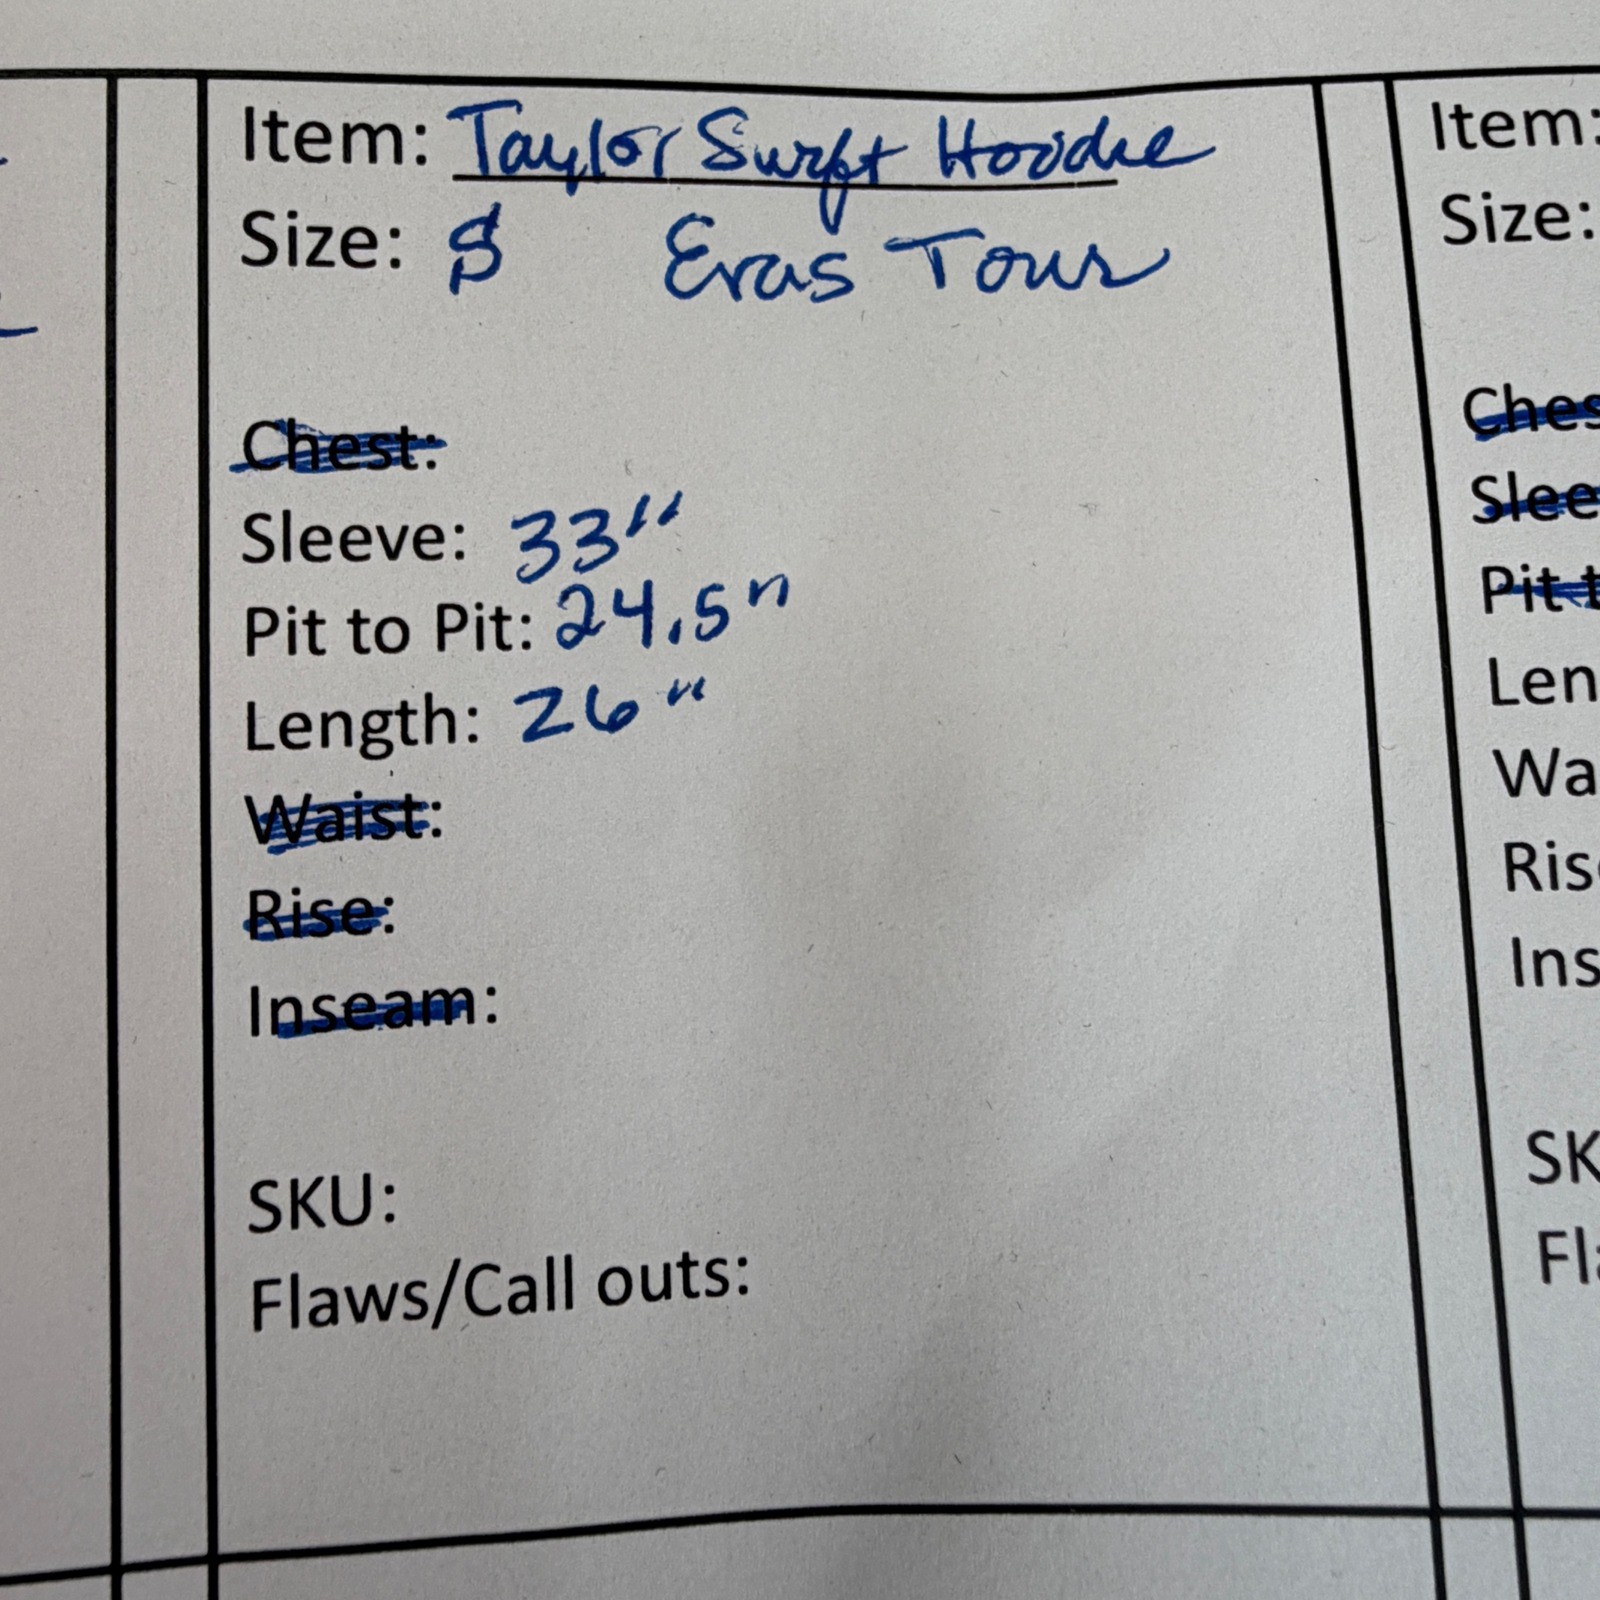 Item: Taylor Swift Hoodie
Size: S Eras Tour
Chest:
Sleeve: 33"
Pit to Pit: 24.5"
Length: 26"
Waist:
Rise:
Inseam:
SKU:
Flaws/Call outs:
Item:
Size:
Ches
Slee
Pit t
Len
Wa
Ris
Ins
SK
Fl